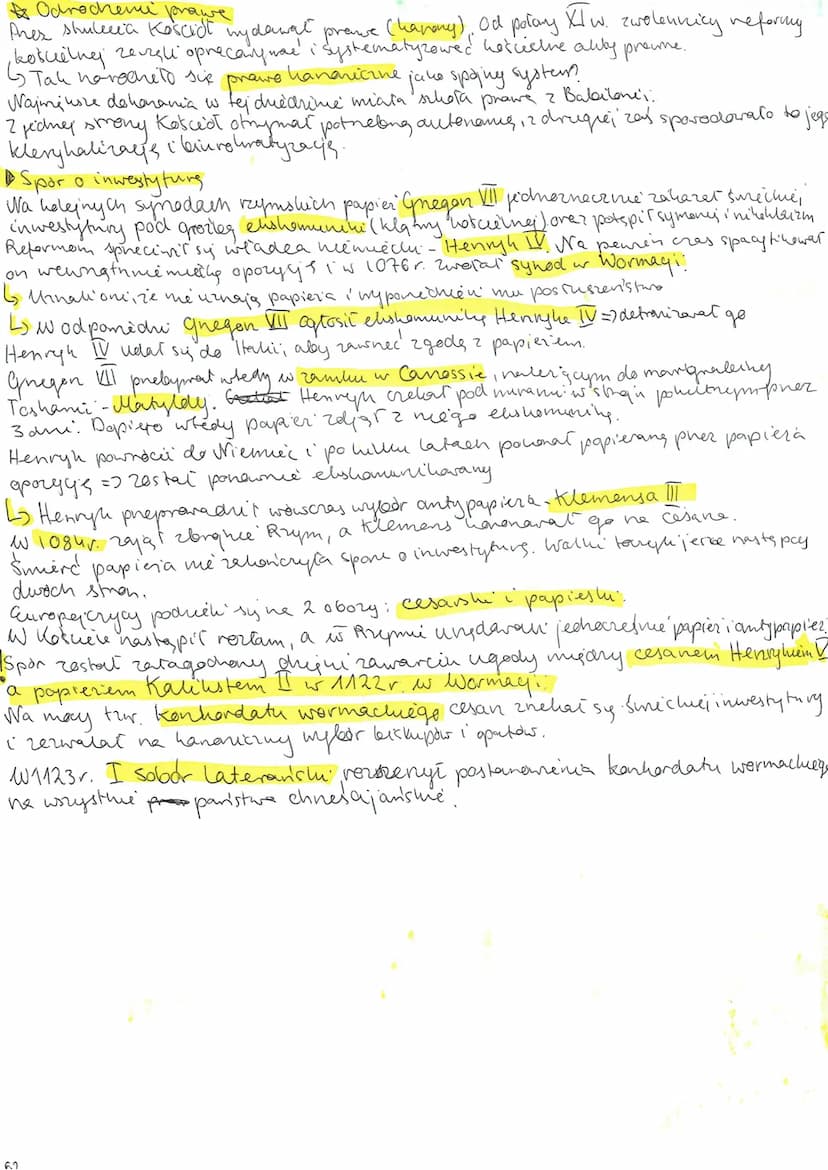 ☆ Odrodzenie prawa
Przez stulecia Kościół wydawał prawa (kanony). Od połowy XI w. zwolennicy reformy
kościelnej zaczęli opracowywać i systematyzować kościelne akty prawne.
↳ Tak narodziło się prawo kanoniczne jako spójny system.
Największe dokonania w tej dziedzinie miała szkoła prawa z
Z jednej strony Kościół otrzymał potrzebną autonomię, z drugiej zaś spowodowało to jego
klerykalizację i biurokratyzację.
▶ Spór o inwestyturę
Na kolejnych synodach rzymskich papież Grzegorz VII jednoznacznie zakazał świeckiej
inwestytury pod groźbą ekskomuniki (klątwy kościelnej) oraz potępił symonię i nikolaizm
Reformom sprzeciwił się władca niemiecki - Henryk IV. Na pewien czas spacyfikował
on wewnątrzniemiecką opozycję i w 1076 r. zwołał synod w Wormacji.
↳ Uznali oni, że nie uznają papieża i wypowiedzieli mu posłuszeństwo
↳ W odpowiedzi Grzegorz VII ogłosił ekskomunikę Henryka IV => detronizował go
Henryk IV udał się do Italii, aby zawrzeć zgodę z papieżem.
Grzegorz VII przebywał wtedy w zamku w Canossie, należącym do margrabiny
Toskanii - Matyldy. Henryk czekał pod murami w stroju pokutnym przez
3 dni. Dopiero wtedy papież zdjął z niego ekskomunikę.
Henryk powrócił do Niemiec i po kilku latach pokonał popieraną przez papieża
opozycję => został ponownie ekskomunikowany
↳ Henryk przeprowadził wówczas wybór antypapieża - Klemensa III
W 1084 r. zajął zbrojnie Rzym, a Klemens koronował go na cesarza.
Śmierć papieża nie zakończyła sporu o inwestyturę. Walki toczyli jeszcze następcy
dwóch stron.
Europejczycy podzielili się na 2 obozy: cesarski i papieski.
W Kościele nastąpił rozłam, a w Rzymie urzędowali jednocześnie papież i antypapież
! Spór został załagodzony dzięki zawarciu ugody między cesarzem Henrykiem V
a papieżem Kalikstem II w 1122 r. w Wormacji.
Na mocy tzw. konkordatu wormackiego cesarz zrzekał się świeckiej inwestytury
i zezwalał na kanoniczny wybór biskupów i opatów.
W 1123 r. I sobór laterański rozszerzył postanowienia konkordatu wormackiego
na wszystkie państwa chrześcijańskie.
62